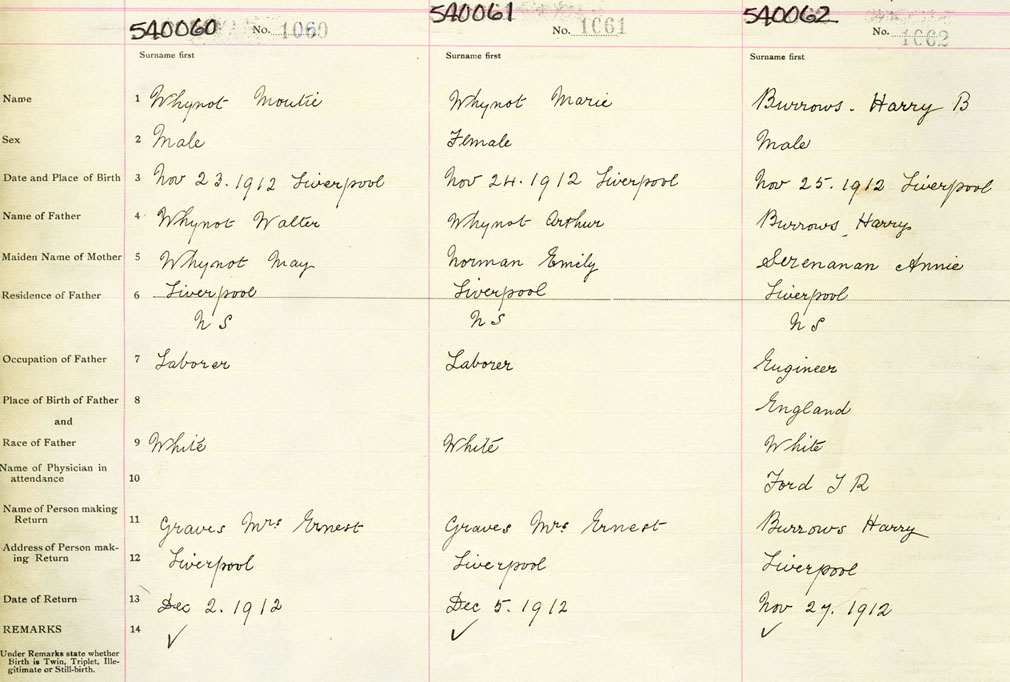 540060 No. 1060 540061 No. 1061 540062 No. 1062
Surname first Surname first Surname first
Name 1 Whynot Moutie Whynot Marie Burrows. Harry B
Sex 2 Male Female Male
Date and Place of Birth 3 Nov 23. 1912 Liverpool Nov 24. 1912 Liverpool Nov 25. 1912 Liverpool
Name of Father 4 Whynot Walter Whynot Arthur Burrows, Harry
Maiden Name of Mother 5 Whynot May Norman Emily Serenanan Annie
Residence of Father 6 Liverpool Liverpool Liverpool
N S N S N S
Occupation of Father 7 Laborer Laborer Engineer
Place of Birth of Father 8 England
and
Race of Father 9 White White White
Name of Physician in
attendance 10 Ford J R
Name of Person making
Return 11 Graves Mrs Ernest Graves Mrs Ernest Burrows Harry
Address of Person mak-
ing Return 12 Liverpool Liverpool Liverpool
Date of Return 13 Dec 2. 1912 Dec 5. 1912 Nov 27. 1912
REMARKS 14 ✓ ✓ ✓
Under Remarks state whether
Birth is Twin, Triplet, Ille-
gitimate or Still-birth.